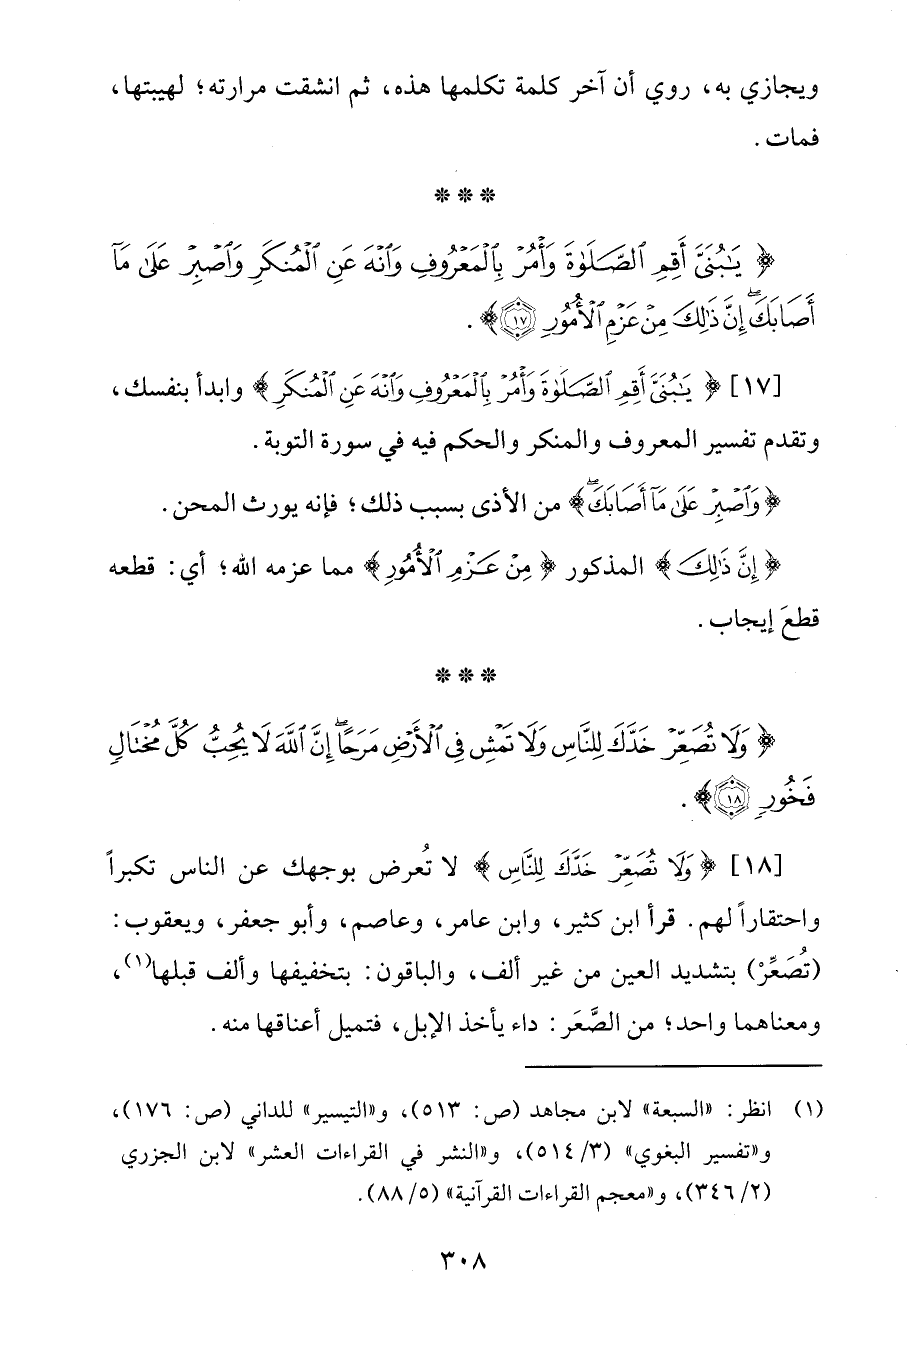 ويجازي به، روي أن آخر كلمة تكلمها هذه، ثم انشقت مرارته؛ لهيبتها،
فمات.
* * *
﴿ يَٰبُنَيَّ أَقِمِ ٱلصَّلَوٰةَ وَأْمُرْ بِٱلْمَعْرُوفِ وَٱنْهَ عَنِ ٱلْمُنكَرِ وَٱصْبِرْ عَلَىٰ مَآ
أَصَابَكَۖ إِنَّ ذَٰلِكَ مِنْ عَزْمِ ٱلْأُمُورِ ١٧﴾.
[١٧] ﴿ يَٰبُنَيَّ أَقِمِ ٱلصَّلَوٰةَ وَأْمُرْ بِٱلْمَعْرُوفِ وَٱنْهَ عَنِ ٱلْمُنكَرِ ﴾ وابدأ بنفسك،
وتقدم تفسير المعروف والمنكر والحكم فيه في سورة التوبة.
﴿وَٱصْبِرْ عَلَىٰ مَآ أَصَابَكَۖ﴾ من الأذى بسبب ذلك؛ فإنه يورث المحن.
﴿إِنَّ ذَٰلِكَ﴾ المذكور ﴿مِنْ عَزْمِ ٱلْأُمُورِ﴾ مما عزمه الله؛ أي: قطعه
قطعَ إيجاب.
* * *
﴿ وَلَا تُصَعِّرْ خَدَّكَ لِلنَّاسِ وَلَا تَمْشِ فِي ٱلْأَرْضِ مَرَحًاۖ إِنَّ ٱللَّهَ لَا يُحِبُّ كُلَّ مُخْتَالٍ
فَخُورٍ ١٨﴾.
[١٨] ﴿وَلَا تُصَعِّرْ خَدَّكَ لِلنَّاسِ﴾ لا تُعرض بوجهك عن الناس تكبراً
واحتقاراً لهم. قرأ ابن كثير، وابن عامر، وعاصم، وأبو جعفر، ويعقوب:
(تُصَعِّرْ) بتشديد العين من غير ألف، والباقون: بتخفيفها وألف قبلها(١)،
ومعناهما واحد؛ من الصَّعَر: داء يأخذ الإبل، فتميل أعناقها منه.
(١) انظر: «السبعة» لابن مجاهد (ص: ٥١٣)، و«التيسير» للداني (ص: ١٧٦)،
و«تفسير البغوي» (٣/ ٥١٤)، و«النشر في القراءات العشر» لابن الجزري
(٢/ ٣٤٦)، و«معجم القراءات القرآنية» (٥/ ٨٨).
٣٠٨